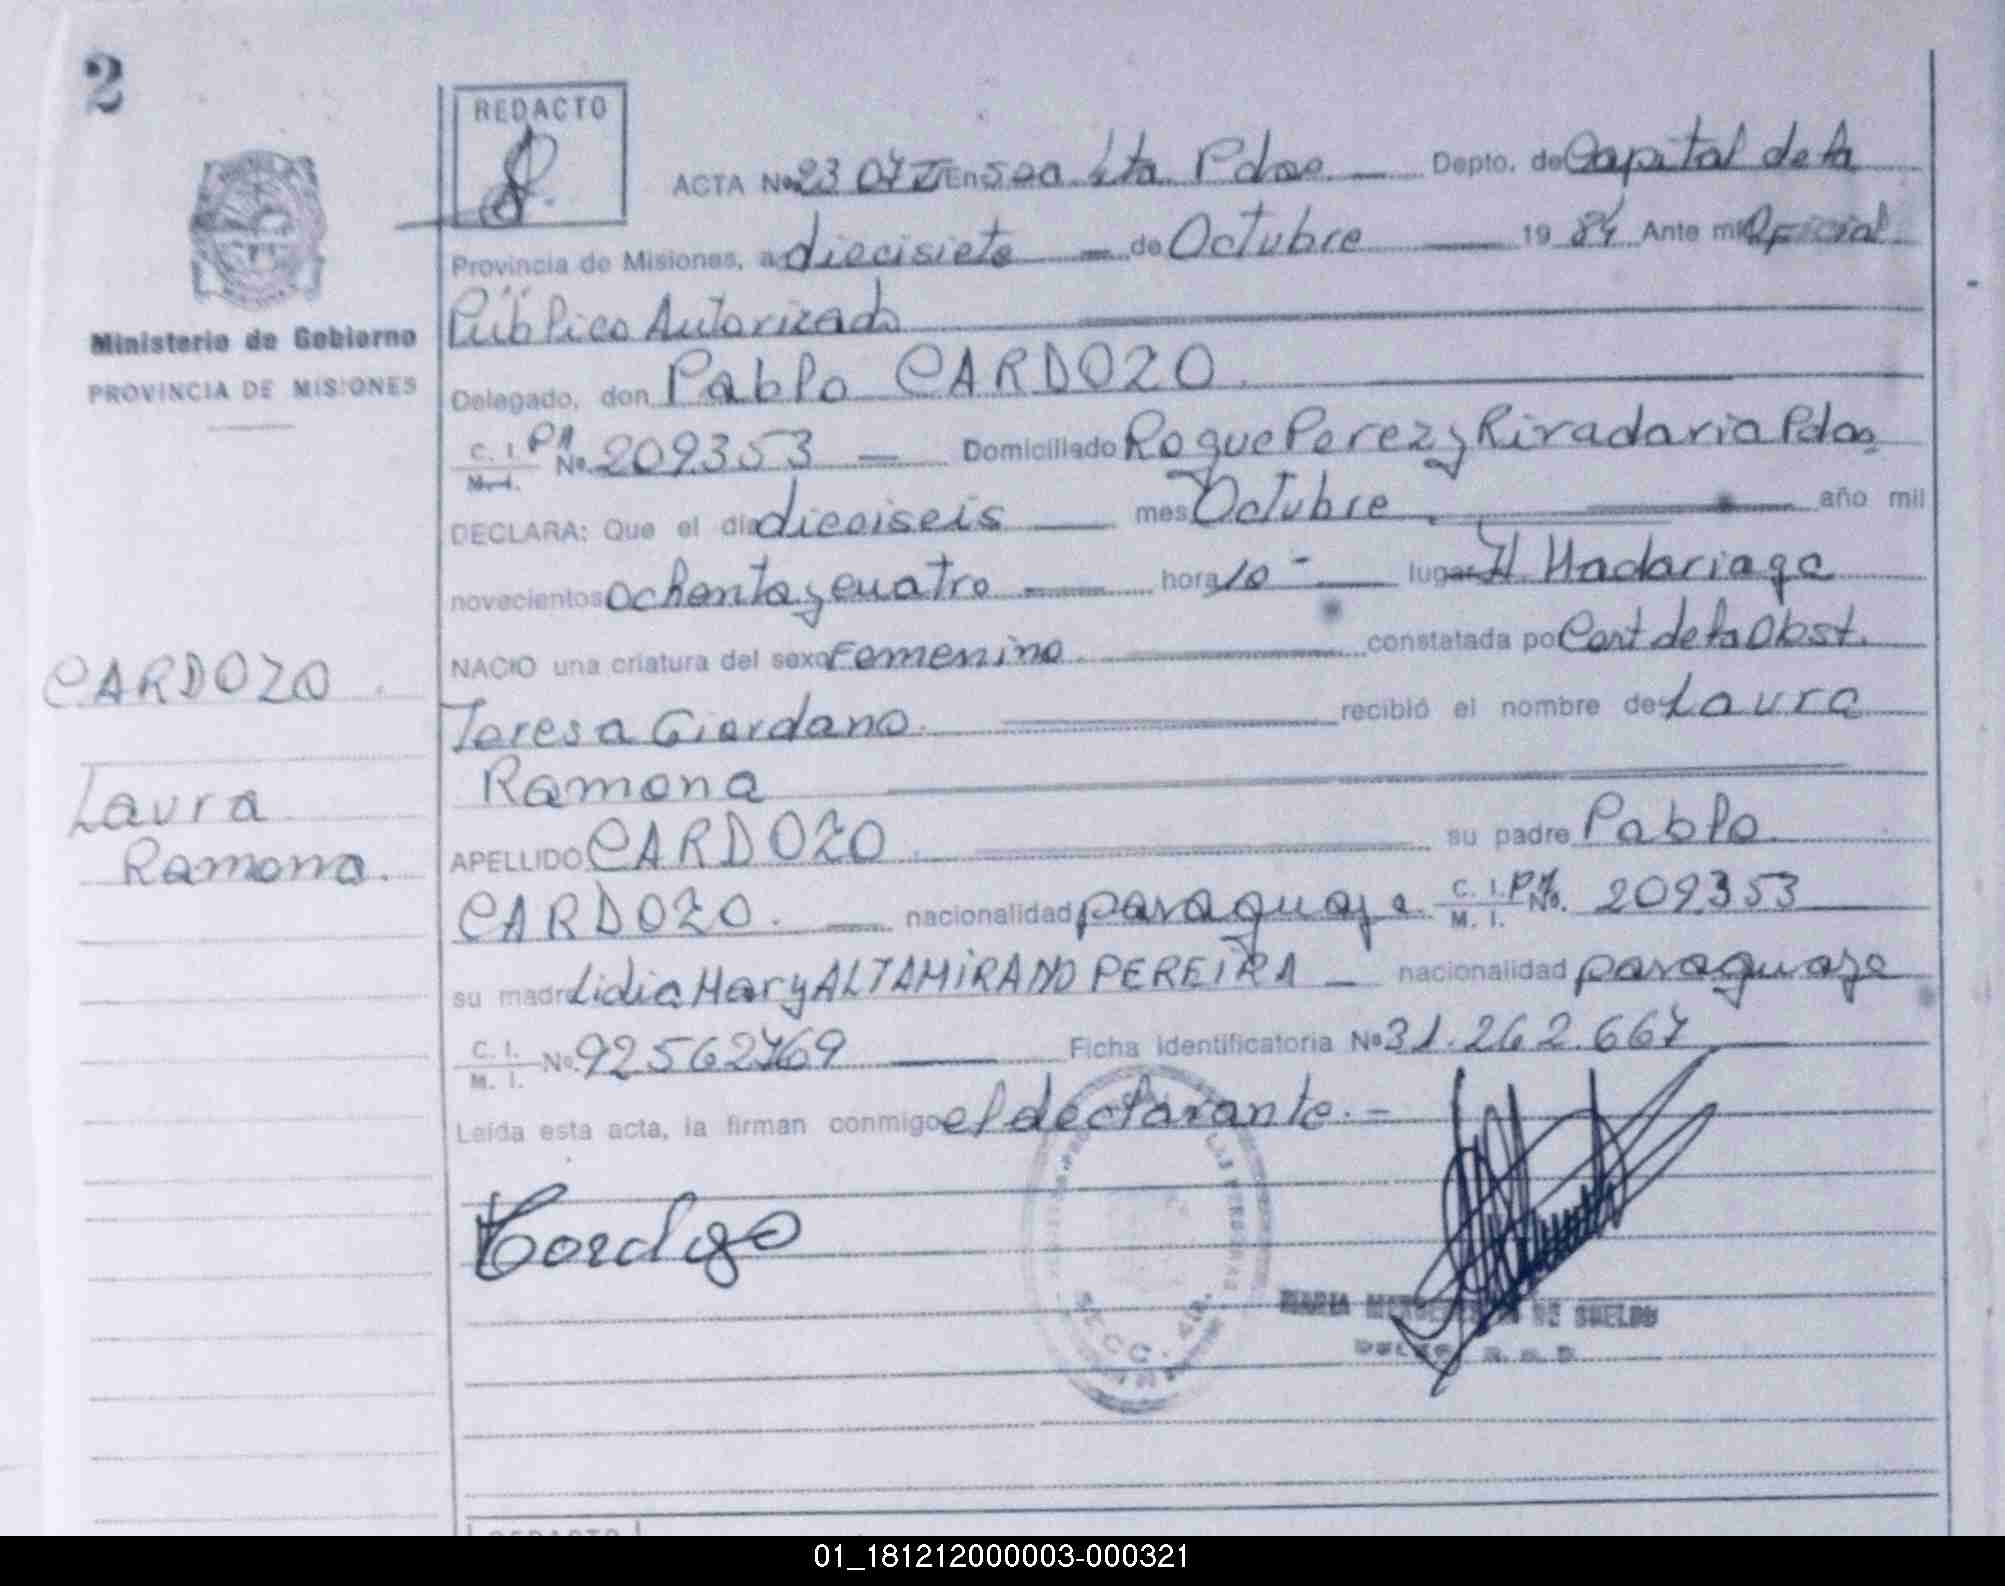 2
REDACTO
ACTA No 2307 I En Sec 4ta Pdas Depto. de Capital de la
Provincia de Misiones, a diecisiete de Octubre 19 84 Ante mi Oficial
Público Autorizado
Ministerio de Gobierno
PROVINCIA DE MISIONES
Delegado, don Pablo CARDOZO
C. I. M. I. No. 209353 Domiciliado Roque Perez y Rivadavia Pdas
DECLARA: Que el día dieciseis mes Octubre año mil
novecientos ochenta y cuatro hora 10 lugar H Madariaga
NACIO una criatura del sexo Femenino constatada por Cert de la Obst.
CARDOZO
Teresa Giordano recibió el nombre de Laura
Ramona
Laura
Ramona.
APELLIDO CARDOZO su padre Pablo
CARDOZO. nacionalidad paraguaya C. I. M. I. No. 209353
su madre Lidia Mary ALTAMIRANO PEREIRA nacionalidad paraguaya
C. I. M. I. No. 92562769 Ficha identificatoria No 31.262.667
Leída esta acta, la firman conmigo el declarante.-
SECC. 4ta.
MARIA DE SUELDO
REDACTO
01_181212000003-000321